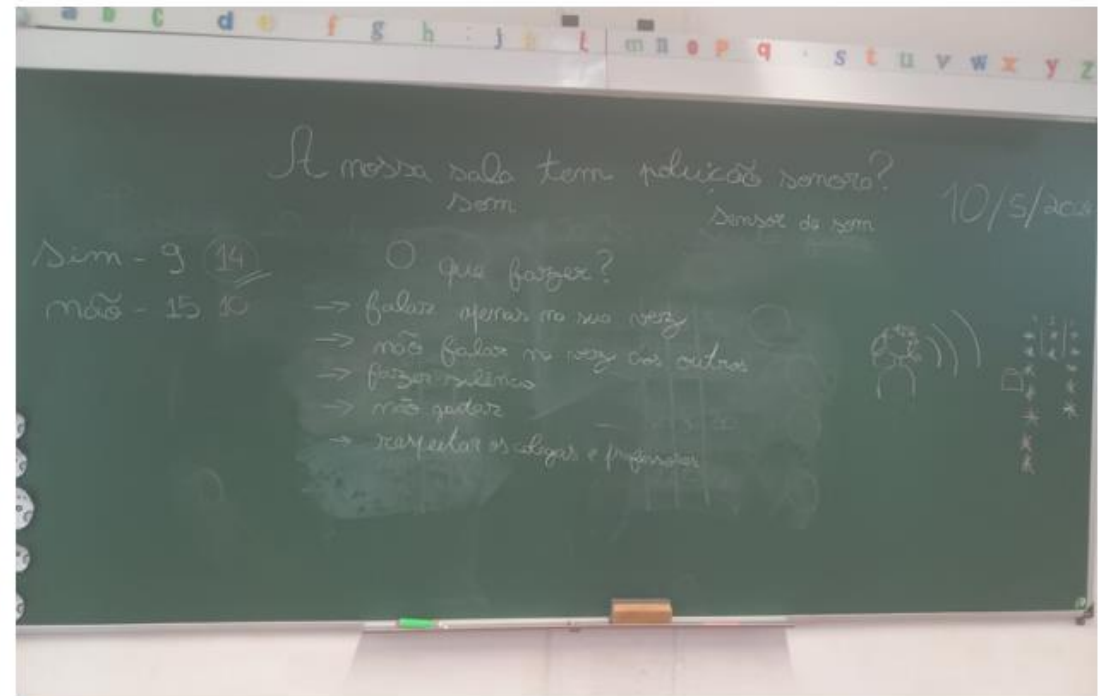 a b c d e f g h i j k l m n o p q r s t u v w x y z
A nossa sala tem poluição sonora?
som
Sensor de som
10/5/
Sim - 9 14
não - 15 10
O que fazer?
→ falar apenas na sua vez
→ não falar na vez dos outros
→ fazer silêncio
→ não
→ respeitar os colegas e professores